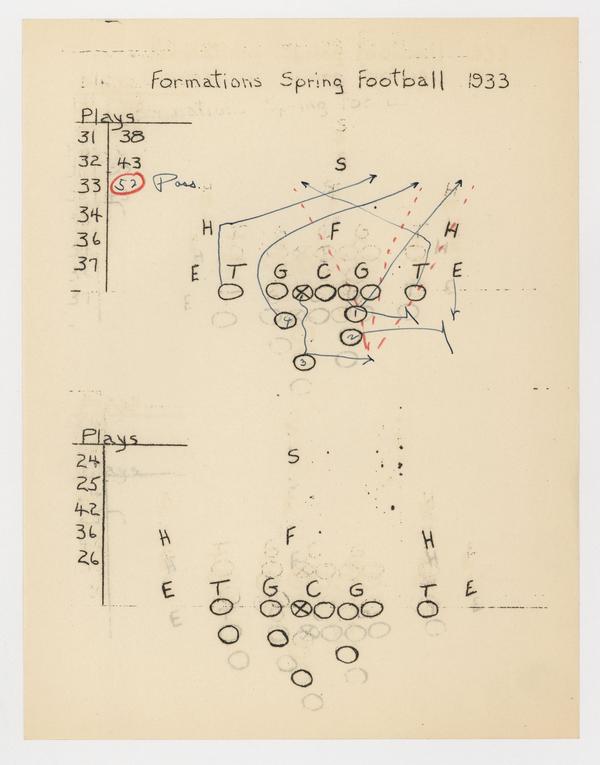 Formations Spring Football 1933
Plays
31 38
32 43
33 52 Pass.
34
36
37
S
H F H
E T G C G T E
X
4 1
2
3
Plays
24
25
42
36
26
S
H F H
E T G C G T E
X